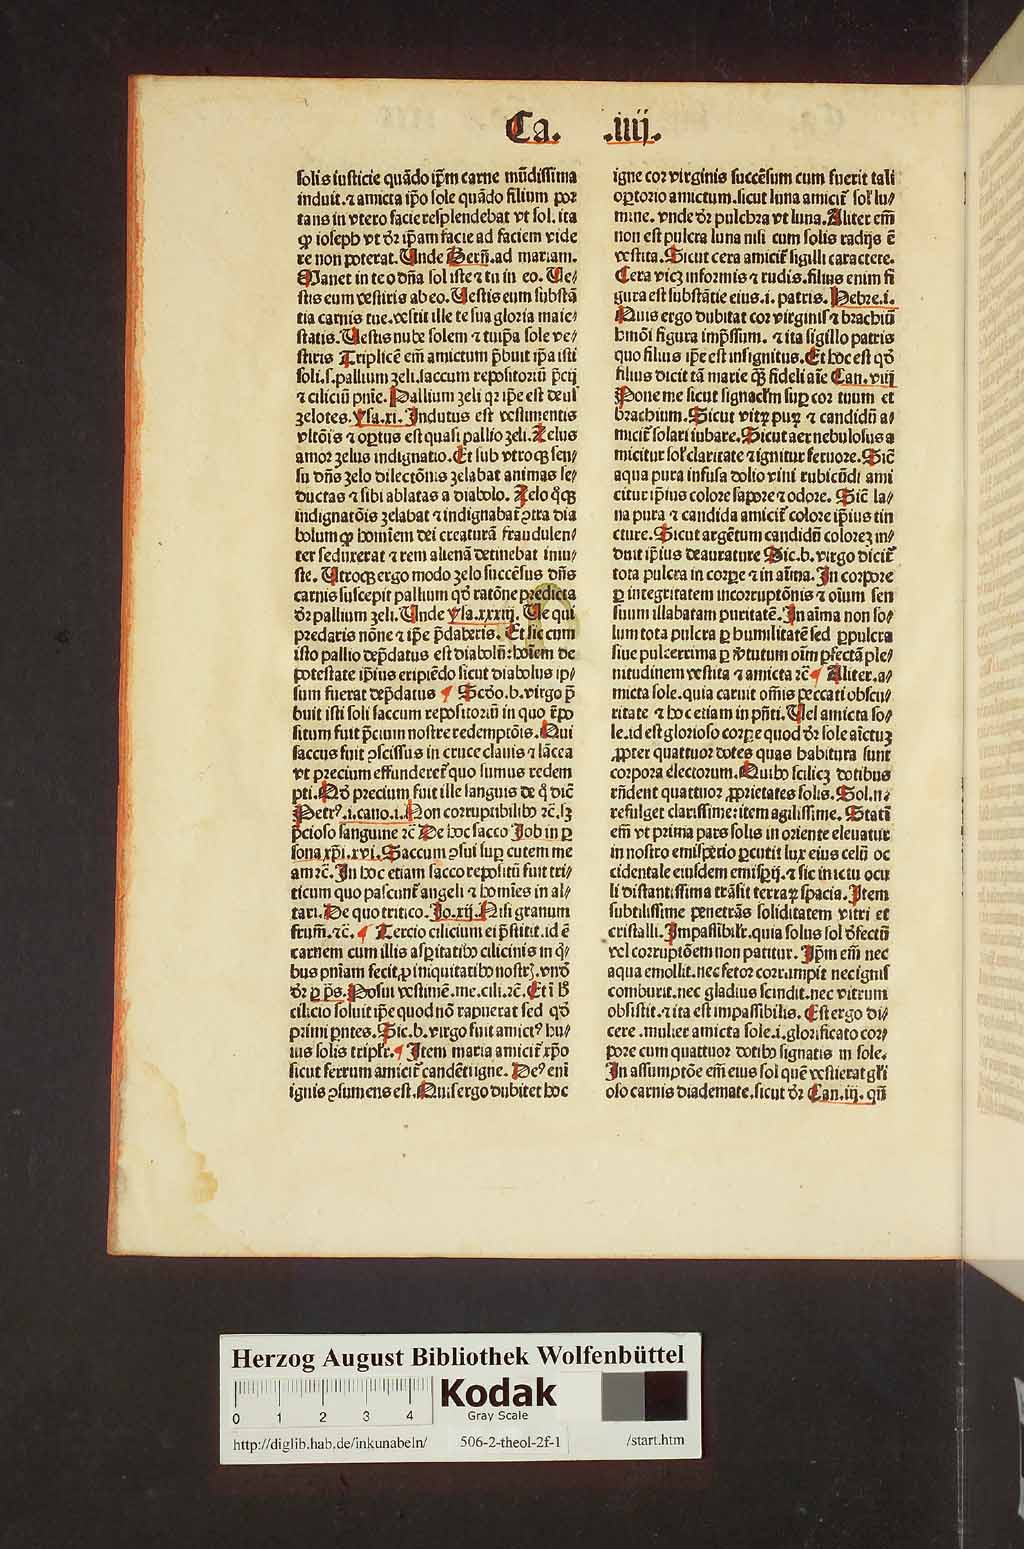 Ca. .iiij.
solis iusticie quādo ip̄m carne mūdissima
induit. ⁊ amicta ip̄o sole quādo filium por
tans in vtero facie resplendebat vt sol. ita
ꝙ ioseph vt dr̄ ip̄am facie ad faciem vide
re non poterat. Unde Bern̄. ad mariam.
Manet in te o dn̄a sol iste ⁊ tu in eo. Ue⸗
stis eum vestiris ab eo. Uestis eum substā
tia carnis tue. vestit ille te sua gloria maie⸗
statis. Uestis nube solem ⁊ tu ip̄a sole ve⸗
stiris Triplicē em̄ amictum p̄buit ip̄a isti
soli. s. pallium zeli. saccum repositoriū p̄cij
⁊ ciliciū pn̄ie. Pallium zeli qꝛ ip̄e est deus
zelotes. Ysa. xi. Indutus est vestimentis
vltōis ⁊ opertus est quasi pallio zeli. Zelus
amor zelus indignatio. Et sub vtroqꝫ sen⸗
su dn̄s zelo dilectōnis zelabat animas se⸗
ductas ⁊ sibi ablatas a diabolo. Zelo qͦqꝫ
indignatōis zelabat ⁊ indignabat᷑ ꝯtra dia
bolum ꝙ hominem dei creaturā fraudulen⸗
ter seduxerat ⁊ rem alienā detinebat iniu⸗
ste. Utroqꝫ ergo modo zelo succēsus dn̄s
carnis suscepit pallium qd̄ ratōne predicta
dr̄ pallium zeli. Unde ysa. xxxiij. Ue qui
predaris nōne ⁊ ip̄e p̄daberis. Et sic cum
isto pallio dep̄datus est diabolꝰ: hoīem de
potestate ip̄ius eripiēdo sicut diabolus ip⸗
sum fuerat dep̄datus ¶ Scd̄o. b. virgo p̄
buit isti soli saccum repositoriū in quo t̄po
situm fuit p̄cium nostre redemptōis. Qui
saccus fuit ꝯscissus in cruce clauis ⁊ lācea
vt precium effunderet᷑ quo sumus redem
pti. Qd̄ precium fuit ille sanguis de qͦ dic̄
Petrꝰ. i. cano. i. Non corruptibilibꝰ ⁊c̄. sꝫ
p̄cioso sanguine ⁊c̄ De hoc sacco Job in ꝑ
sona xp̄i. xvi. Saccum ꝯsui suꝑ cutem me
am ⁊c̄. In hoc etiam sacco repositū fuit tri⸗
ticum quo pascunt᷑ angeli ⁊ homīes in al⸗
tari. De quo tritico. Io. xij. Nisi granum
frum̄. ⁊c̄. ¶ Tercio cilicium ei p̄stitit. id ē
carnem cum illis asꝑitatibꝰ cilicinis in qͥ⸗
bus pn̄iam fecit ꝓ iniquitatibꝰ nostrꝭ. vnd̄
dr̄ ꝑ ps̄. Posui vestimē. me. cili. ⁊c̄. Et ī hͦ
cilicio soluit ip̄e quod nō rapuerat sed qd̄
primi pn̄tes. Sic. b. virgo fuit amictꝰ hu⸗
ius solis triplꝛ. ¶ Item maria amicit᷑ xp̄o
sicut ferrum amicit᷑ candēti igne. Deꝰ eni
ignis ꝯsumens est. Quis ergo dubitet hoc
igne cor virginis succēsum cum fuerit tali
oꝑtorio amictum. sicut luna amicit᷑ sol̄ lu⸗
mine. vnde dr̄ pulchra vt luna. Aliter em̄
non est pulcra luna nisi cum solis radijs ē
vestita. Sicut cera amicit᷑ sigilli caractere.
Cera vicꝫ informis ⁊ rudis. filius enim fi
gura est substātie eius. i. patris. Hebre. i.
Quis ergo dubitat cor virginis ⁊ brachiū
hmōi figura imp̄ssum. ⁊ ita sigillo patris
quo filius ip̄e est insignitus. Et hoc est qd̄
filius dicit tā marie qꝫ fideli aīe Can. viij
Pone me sicut signaclm̄ suꝑ cor tuum et
brachium. Sicut vitꝝ puꝝ ⁊ candidū a⸗
micit᷑ solari iubare. Sicut aer nebulosus a
micitur sol̄ claritate ⁊ ignitur feruore. Sic̄
aqua pura infusa dolio vini rubicūdi ami
citur ip̄ius colore sapore ⁊ odore. Sic̄ la⸗
na pura ⁊ candida amicit᷑ colore ip̄ius tin
cture. Sicut argētum candidū colorez in⸗
duit ip̄ius deaurature Sic. b. virgo dicit᷑
tota pulcra in corꝑe ⁊ in aīma. In corpore
ꝑ integritatem incorruptōnis ⁊ oīum sen
suum illabatam puritatē. In aīma non so⸗
lum tota pulcra ꝑ humilitatē sed ꝑpulcra
siue pulcerrima ꝑ v̄tutum oīm ꝑfectā ple⸗
nitudinem vestita ⁊ amicta ⁊c̄ ¶ Aliter. a⸗
micta sole. quia caruit om̄is peccati obscu⸗
ritate ⁊ hoc etiam in pn̄ti. Uel amicta so⸗
le. id est glorioso corꝑe quod dr̄ sole aīctuꝫ
ꝓpter quattuor dotes quas habitura sunt
corpora electorum. Quibꝰ scilicꝫ dotibus
rn̄dent quattuor ꝓprietates solis. Sol. n.
refulget clarissime: item agilissime. Statī
em̄ vt prima pars solis in oriente eleuatur
in nostro emisperio ꝑcutit lux eius celū oc
cidentale eiusdem emisꝑij. ⁊ sic in ictu ocu
li distantissima trāsit terraꝝ spacia. Item
subtilissime penetrās soliditatem vitri et
cristalli. Impassibilr̄. quia solus sol defectū
vel corruptōem non patitur. Ip̄m em̄ nec
aqua emollit. nec fetor corrumpit nec ignis
comburit. nec gladius scindit. nec vitrum
obsistit. ⁊ ita est impassibilis. Est ergo di⸗
cere. mulier amicta sole. i. glorificato cor⸗
pore cum quattuor dotibꝰ signatis in sole.
In assumptōe em̄ eius sol quē vestierat gl̄i
oso carnis diademate. sicut dr̄ Can. iij. qn̄
Herzog August Bibliothek Wolfenbüttel
0 1 2 3 4
Kodak
Gray Scale
http://diglib.hab.de/inkunabeln/ 506-2-theol-2f-1 /start.htm